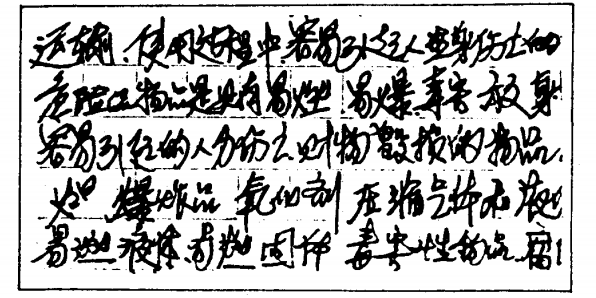 运输、使用过程中容易引起人坐身伤亡的
危险性物品是具有易燃 易爆、毒害 放射
容易引起的人身伤亡、财物毁损的物品.
如 爆炸品 氧化剂 压缩气体和液
易燃液体、易燃固体 毒害性物品、腐